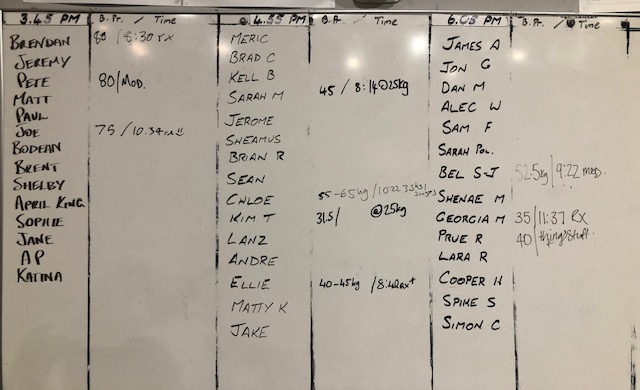 3.45 PM B.Pr. / Time
BRENDAN 80 / 8:30 rx
JEREMY
PETE 80/MOD.
MATT
PAUL
JOE 75 / 10.34
BODEAN
BRENT
SHELBY
APRIL KING
SOPHIE
JANE
AP
KATINA
4.55 PM B.Pr. / Time
MERIC
BRAD C
KELL B
SARAH M 45 / 8:14@25kg
JEROME
SHEAMUS
BRIAN R
SEAN
CHLOE 55-65kg/10:22
KIM T 31.5/ @25kg
LANZ
ANDRE
ELLIE 40-45kg /8:42rx+
MATTY K
JAKE
6.05 PM B.Pr. / Time
JAMES A
JON G
DAN M
ALEC W
SAM F
SARAH POL.
BEL S-J 52.5kg/9:22 mod.
SHENAE M
GEORGIA M 35/11:37 RX
PRUE R 40/thingstuff.
LARA R
COOPER H
SPIKE S
SIMON C